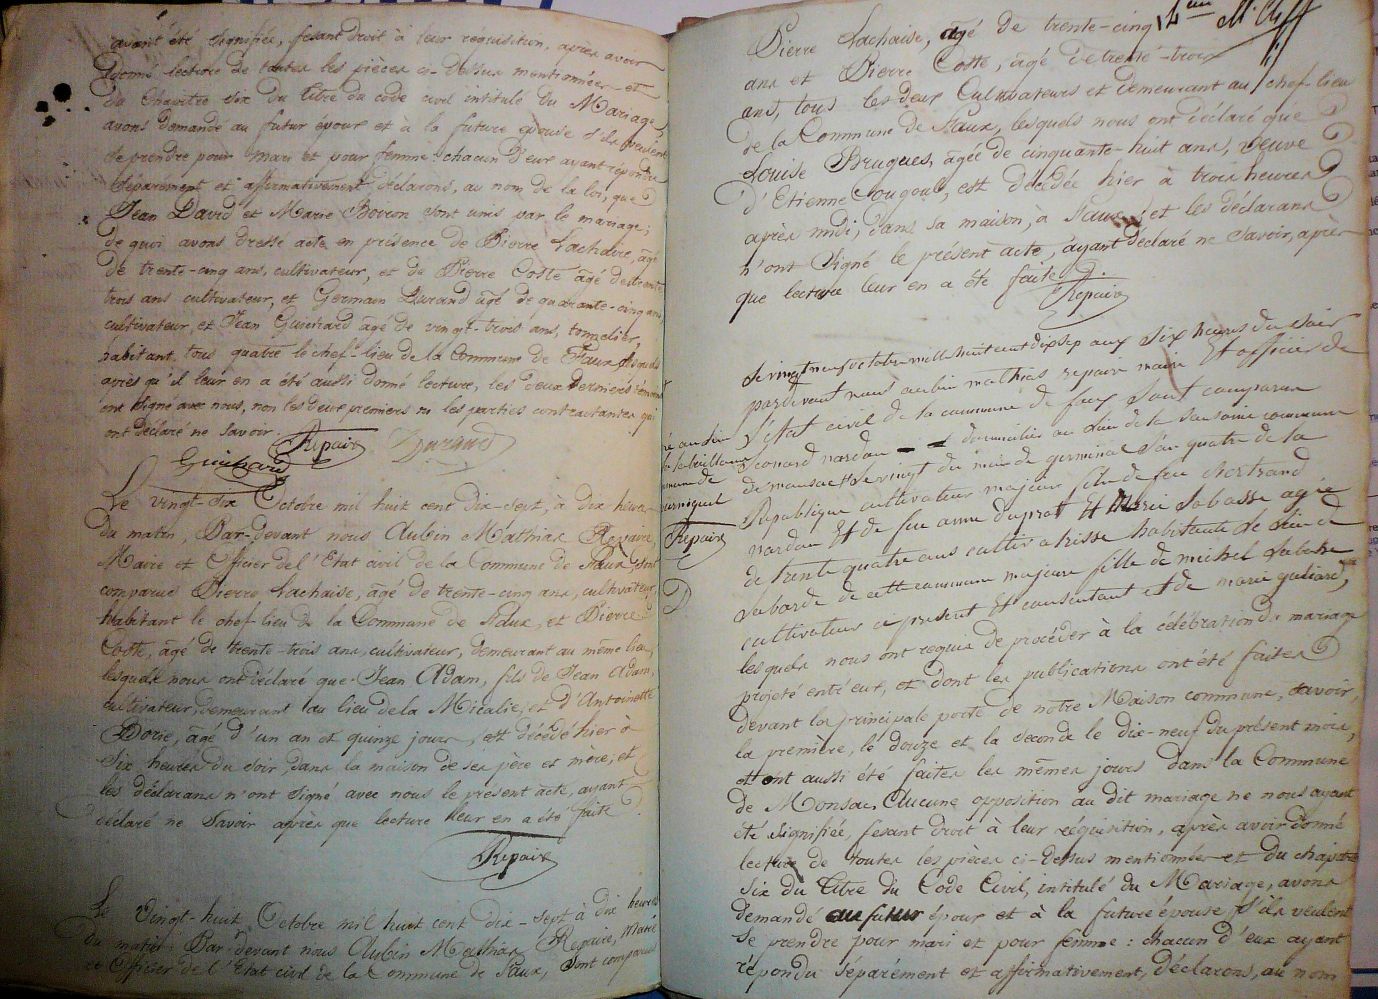 ayant été signifiée, fesant droit à leur requisition, après avoir
donné lecture de toutes les pièces ci-dessus mentionnées et
du chapitre six du titre du code civil intitulé Du Mariage,
avons demandé au futur époux et à la future épouse s'ils veulent
se prendre pour mari et pour femme : chacun d'eux ayant répondu
séparément et affirmativement, déclarons, au nom de la loi, que
Jean David et Marie Boyron sont unis par le mariage;
de quoi avons dressé acte en présence de Pierre Lachaise, agé
de trente-cinq ans, cultivateur, et de Pierre Coste agé de trente
trois ans cultivateur, et Germain Durand agé de quarante-cinq ans,
cultivateur, et Jean Guichard agé de vingt-trois ans, tonnelier,
habitant tous quatre le chef-lieu de la Commune de Faux, lesquels
après qu'il leur en a été aussi donné lecture, les deux derniers témoins
ont signé avec nous, non les deux premiers ni les parties contractantes qui
ont déclaré ne savoir. Repaire Durand
Guichard
Le vingt-six Octobre mil huit cent dix-sept, à dix heures
du matin, Par-Devant nous Aubin Mathias Repaire,
Maire et Officier de l'Etat civil de la Commune de Faux, sont
comparus Pierre Lachaise, agé de trente-cinq ans, cultivateur,
habitant le chef-lieu de la Commune de Faux, et Pierre
Coste, agé de trente-trois ans, cultivateur, demeurant au même lieu,
lesquels nous ont déclaré que Jean Adam, fils de Jean Adam,
cultivateur, demeurant au lieu de la Micalie, et d'Antoinette
Dorie, agé d'un an et quinze jours, est décédé hier à
six heures du soir, dans la maison de ses père et mère; et
les déclarans n'ont signé avec nous le présent acte, ayant
déclaré ne savoir après que lecture leur en a été faite.
Repaire
Le Vingt-huit Octobre mil huit cent dix-sept à dix heures
du matin Par-devant nous Aubin Mathias Repaire, Maire
et Officier de l'Etat civil de la Commune de Faux, sont comparus
Pierre Lachaise, agé de trente-cinq
ans et Pierre Coste, agé de trente-trois
ans, tous les deux Cultivateurs et demeurant au chef-lieu
de la Commune de Faux, lesquels nous ont déclaré que
Louise Brugues, agée de cinquante-huit ans, veuve
d'Etienne Lougoul, est décédée hier à trois heures
après midi, dans sa maison, à Faux; et les déclarans
n'ont signé le présent acte, ayant déclaré ne savoir, après
que lecture leur en a été faite.
Repaire
Le vingt neuf octobre mille huit cent dix sep aux six heures du soir
pardevant nous aubin mathias repaire maire Et officier de
L'état civil de la commune de faux sont comparus
Leonard nardou domicilié au lieu de la commune
de mansac né le vingt du mois de germinal l'an quatre de la
Republique cultivateur majeur fils de feu Bertrand
nardou Et de feu anne duprat Et Marie Labasse agée
de trente quatre ans cultivatrisse habitante le lieu de
Labarde de cette commune majeure fille de michel Labasse
cultivateur ci present Et consentant et de marie guliard,
Repaire
lesquels nous ont requis de procéder à la célébration du mariage
projeté entr'eux, et dont les publications ont été faites
devant la principale porte de notre Maison commune, savoir,
la première, le douze et la seconde le dix-neuf du présent mois,
et ont aussi été faites les mêmes jours dans la Commune
de Monsac, Aucune opposition au dit mariage ne nous ayant
été signifiée, fesant droit à leur réquisition, après avoir donné
lecture de toutes les pièces ci-dessus mentionnées et du chapitre
six du Titre du Code Civil, intitulé du Mariage, avons
demandé au futur époux et à la future épouse s'ils veulent
se prendre pour mari et pour femme : chacun d'eux ayant
répondu séparément et affirmativement, déclarons, au nom